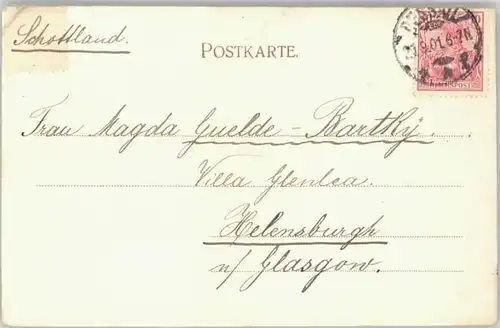 Schottland.
POSTKARTE.
9.01.6-7N
REICHSPOST
Frau Magda Guelde-Bartky.
Villa Glenlea.
Helensburgh
n/ Glasgow.